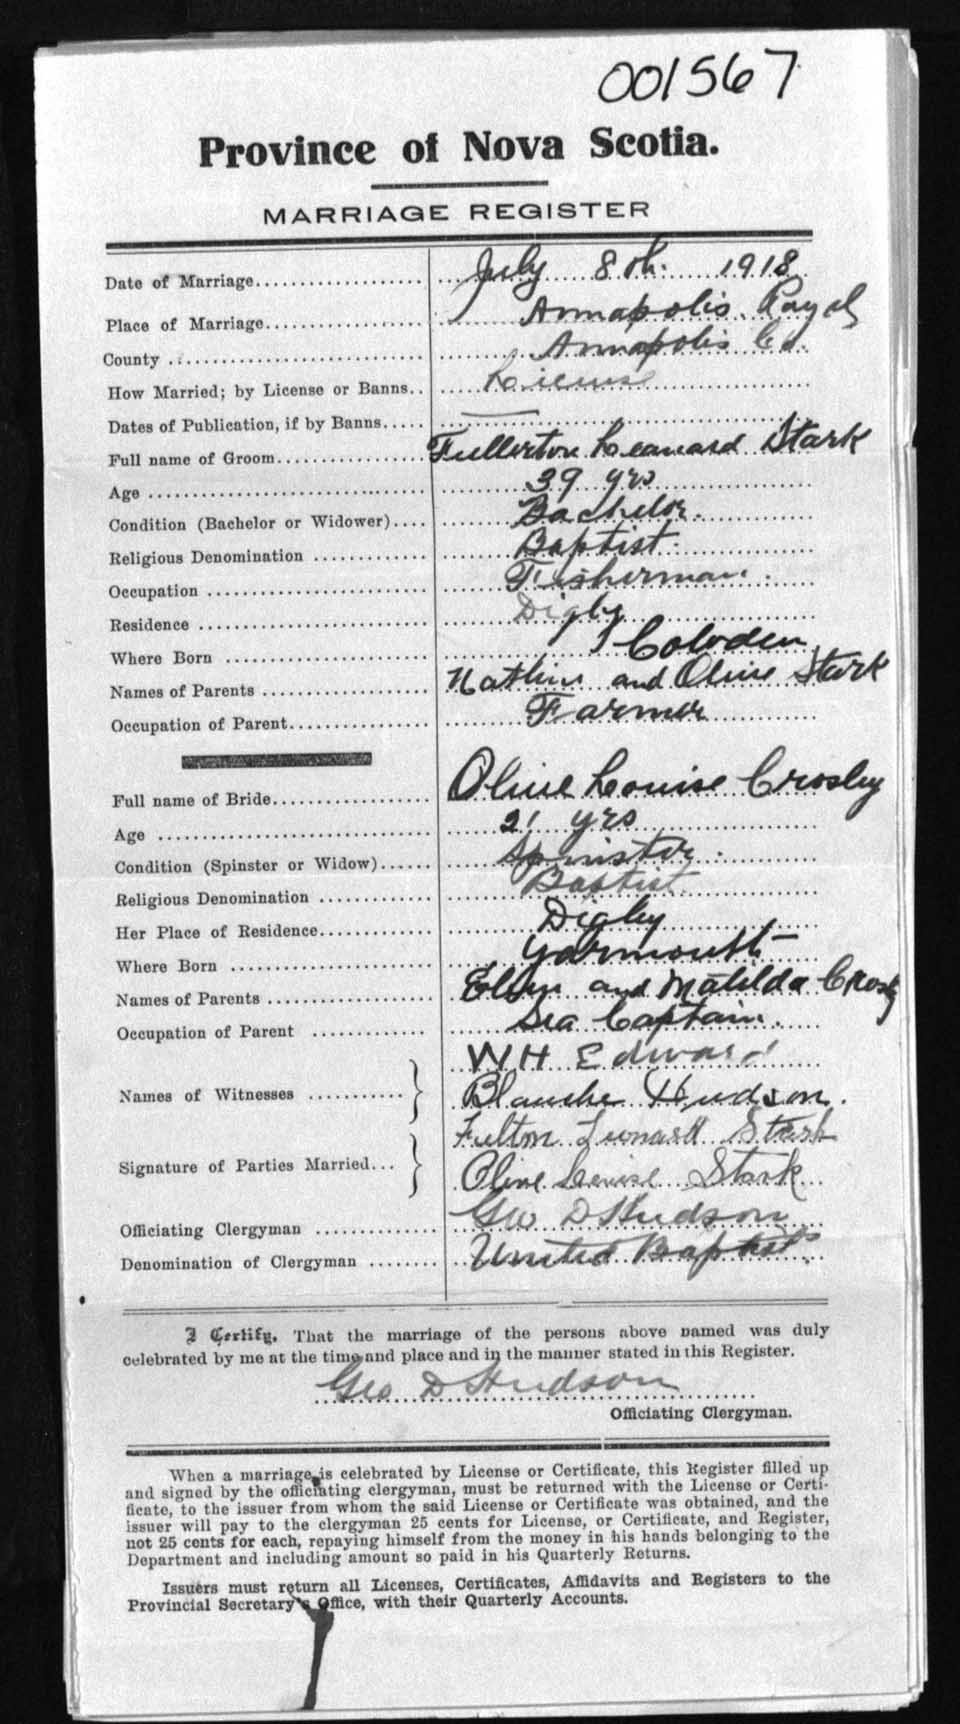 001567
Province of Nova Scotia.
MARRIAGE REGISTER
Date of Marriage.................... July 8th. 1918
Place of Marriage................... Annapolis Royal
County ............................. Annapolis Co.
How Married; by License or Banns.. License
Dates of Publication, if by Banns.....
Full name of Groom.................. Fullerton Leanard Stark
Age ................................ 39 yrs
Condition (Bachelor or Widower).... Bachelor.
Religious Denomination ............. Baptist.
Occupation ......................... Fisherman.
Residence .......................... Digby
Where Born ......................... Coloden
Names of Parents ................... and Olive Stark
Occupation of Parent................ Farmer
Full name of Bride.................. Olive Louise Crosby
Age ................................ 21 yrs
Condition (Spinster or Widow)...... Spinster.
Religious Denomination ............. Baptist
Her Place of Residence.............. Digby
Where Born ......................... Yarmouth
Names of Parents ................... and Matilda Crosby
Occupation of Parent ............... Sea Captain.
W H Edward
Names of Witnesses ........... } Blanche Hudson.
Fulton Stark
Signature of Parties Married... } Olive Louise Stark
Officiating Clergyman .............. Geo D Hudson
Denomination of Clergyman ........ United Baptist
I Certify, That the marriage of the persons above named was duly
celebrated by me at the time and place and in the manner stated in this Register.
Geo D Hudson
Officiating Clergyman.
When a marriage is celebrated by License or Certificate, this Register filled up
and signed by the officiating clergyman, must be returned with the License or Certi-
ficate, to the issuer from whom the said License or Certificate was obtained, and the
issuer will pay to the clergyman 25 cents for License, or Certificate, and Register,
not 25 cents for each, repaying himself from the money in his hands belonging to the
Department and including amount so paid in his Quarterly Returns.
Issuers must return all Licenses, Certificates, Affidavits and Registers to the
Provincial Secretary's Office, with their Quarterly Accounts.